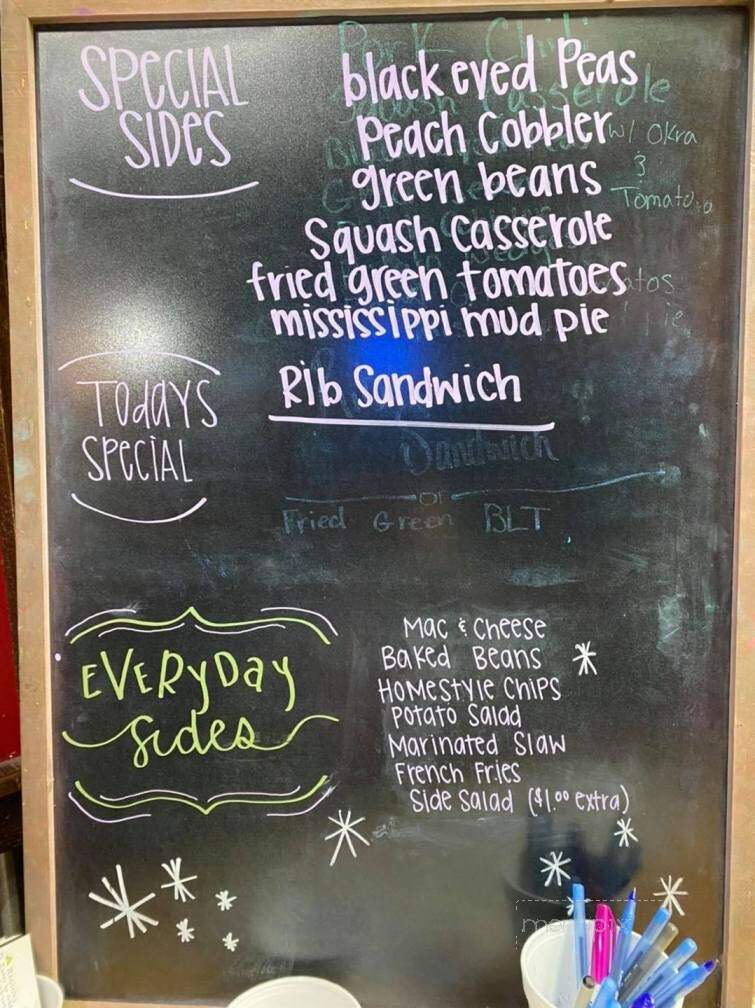 SPECIAL SIDES
black eyed Peas
Peach Cobbler
green beans
Squash Casserole
fried green tomatoes
mississippi mud pie
w/ Okra
&
Tomato
TOdAYS SPECIAL
Rib Sandwich
Sandwich
or
Fried Green BLT
EVERYDAY sides
Mac & Cheese
Baked Beans
HOMestyle Chips
Potato Salad
Marinated Slaw
French Fries
Side Salad ($1.00 extra)